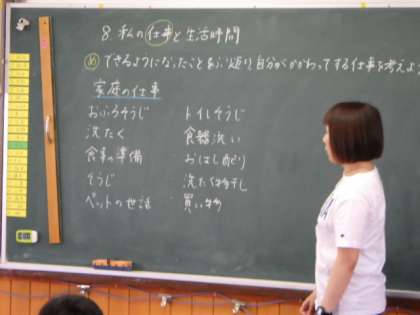 8. 私の仕事と生活時間
め できるようになったことをふり返り、自分がかかわってする仕事を考えよう
家庭の仕事
おふろそうじ
洗たく
食事の準備
そうじ
ペットの世話
トイレそうじ
食器洗い
おはし配り
洗たく物干し
買い物